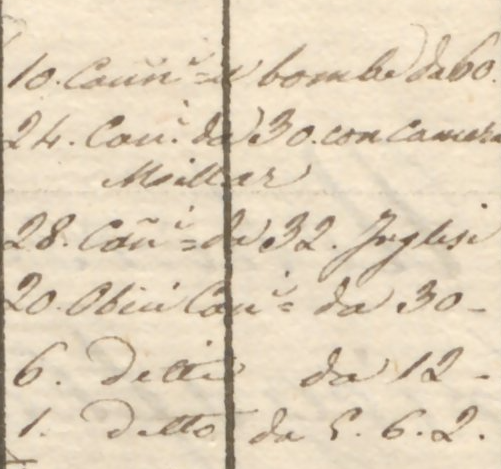 10. Cann.i a bombe da 60
24. Can.i da 30. con Camera
Meillar
28. Can.i = da 32. Inglesi
20. Obici Can.i = da 30 -
6. Detti da 12 -
1. Detto da 5. 6. 2.